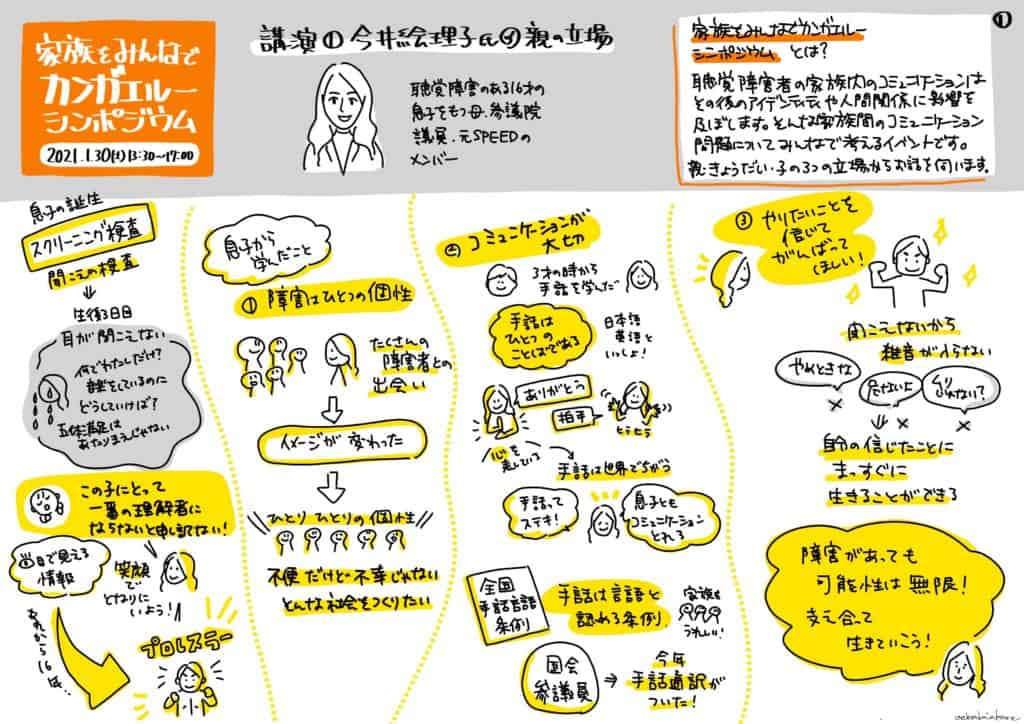 家族をみんなで
カンガエルー
シンポジウム
2021.1.30(土)13:30〜17:00
講演① 今井絵理子氏 親の立場
聴覚障害のある16才の
息子をもつ母.参議院
議員.元SPEEDの
メンバー
①
家族をみんなでカンガエルー
シンポジウム とは?
聴覚障害者の家族内のコミュニケーションは
その後のアイデンティティや人間関係に影響を
及ぼします。そんな家族間のコミュニケーション
問題についてみんなで考えるイベントです。
親・きょうだい・子の3つの立場からお話を伺います。
息子の誕生
スクリーニング検査
聞こえの検査
生後3日目
耳が聞こえない
何でわたしだけ?
音楽をしているのに
どうしていけば?
五体満足は
あたりまえじゃない
この子にとって
一番の理解者に
ならないと申し訳ない!
目で見える
情報
笑顔で
となりに
いよう!
あれから16年..
プロレスラー
息子から
学んだこと
① 障害はひとつの個性
たくさんの
障害者との
出会い
イメージが変わった
ひとりひとりの個性
不便だけど不幸じゃない
そんな社会をつくりたい
② コミュニケーションが
大切
3才の時から
手話を学んだ
手話は
ひとつの
ことばである
日本語
英語と
いっしょ!
ありがとう
拍手
心を
表している
手話は世界でちがう
手話って
ステキ!
息子とも
コミュニケーション
とれる
全国
手話言語
条例
手話は言語と
認める条例
家族も
うれしい!
国会
参議員
今年
手話通訳が
ついた!
③ やりたいことを
信じて
がんばって
ほしい!
聞こえないから
雑音が入らない
やめときな
危ないよ
自分の信じたことに
まっすぐに
生きることができる
障害があっても
可能性は無限!
支え合って
生きていこう!